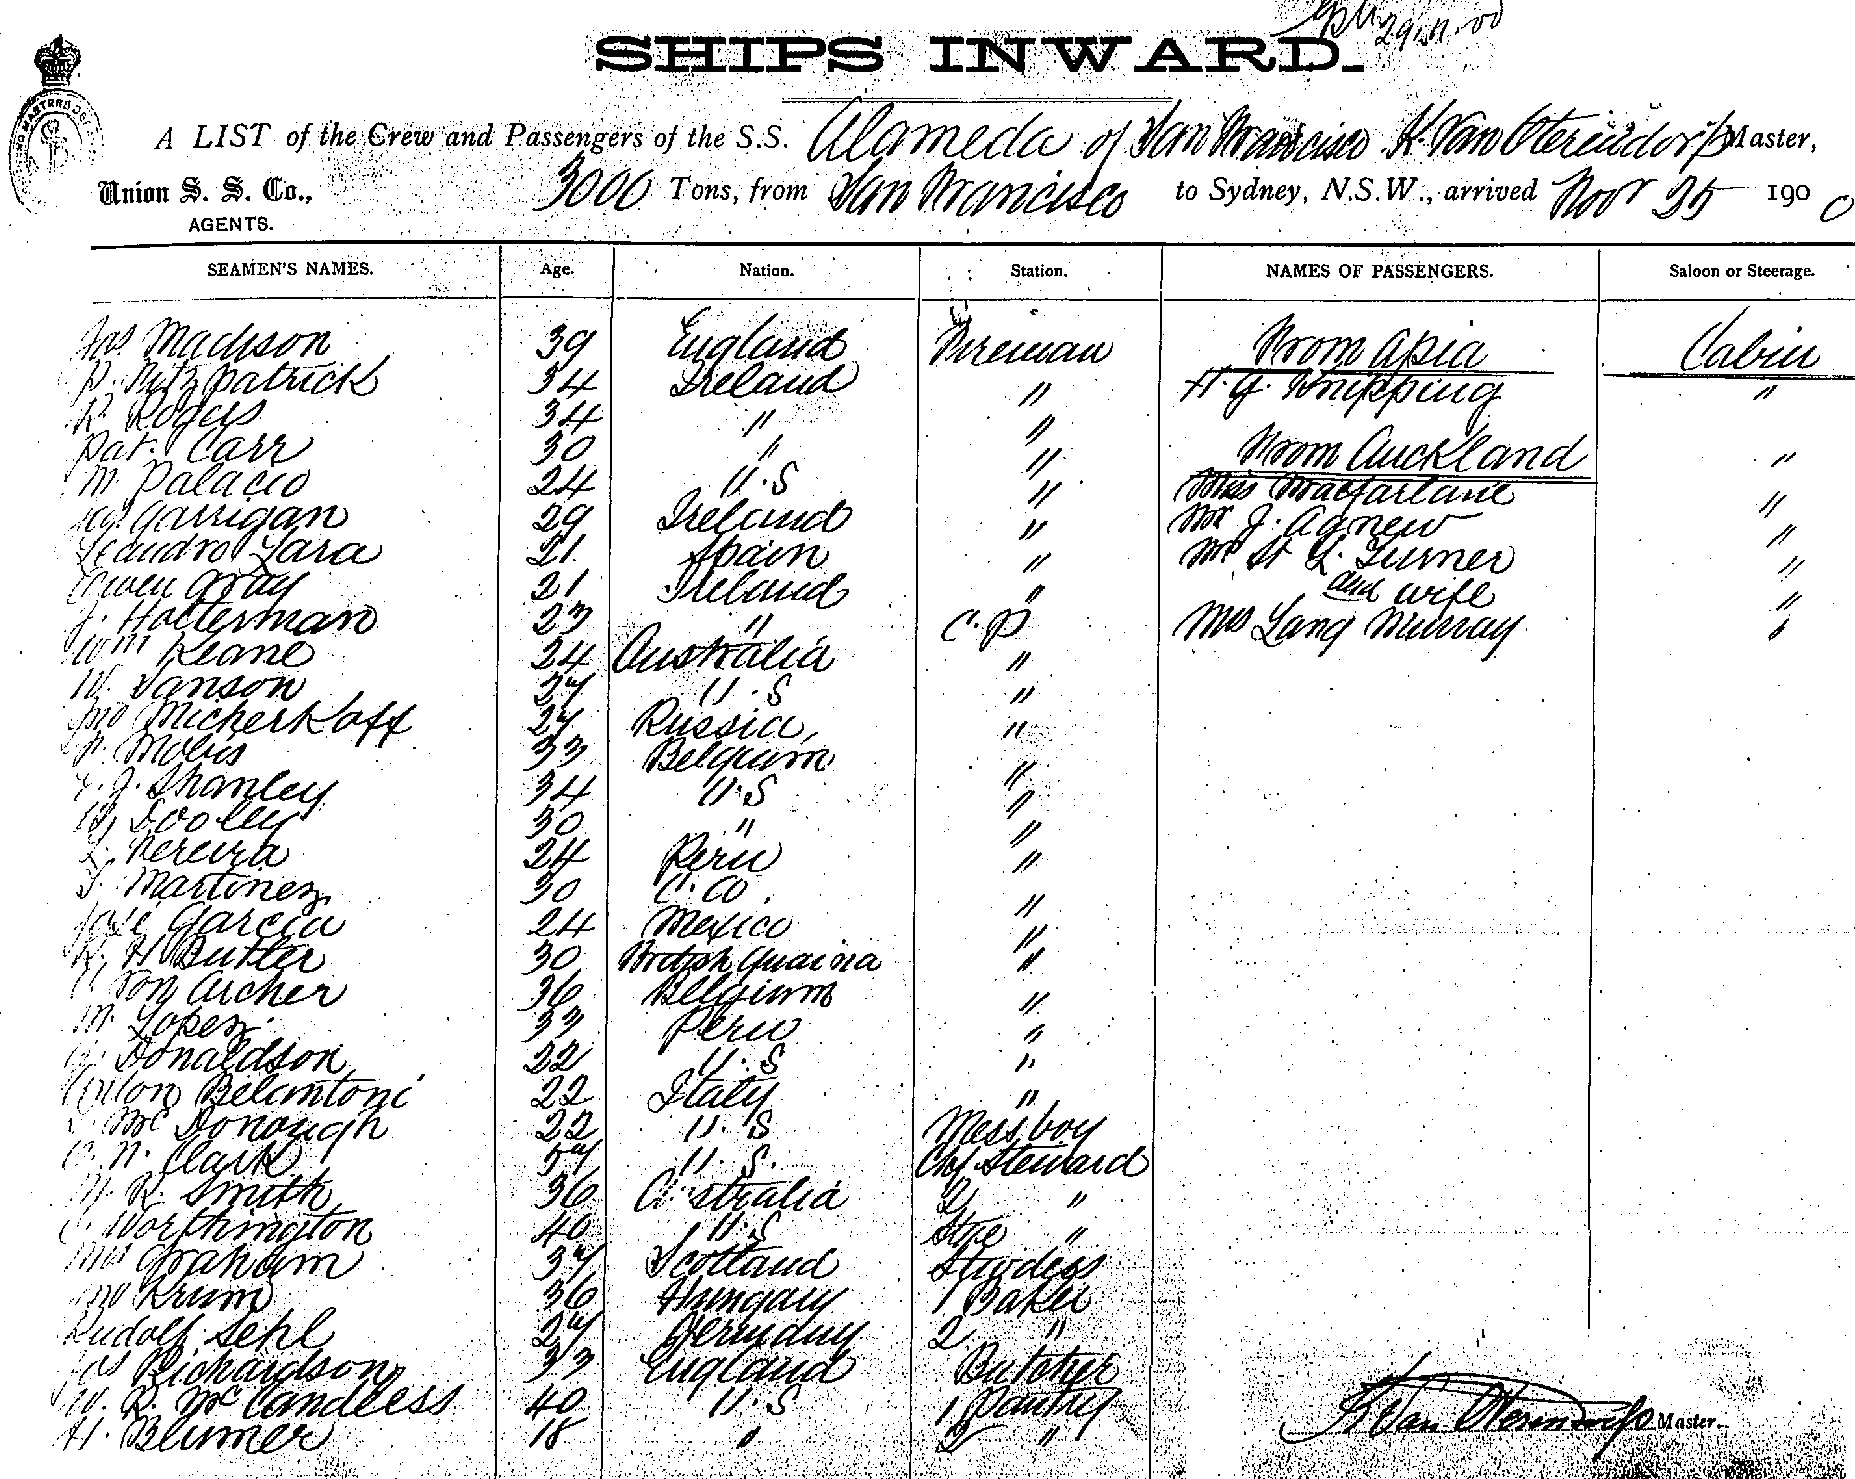 29.11.00
SHIPS INWARD.
A LIST of the Crew and Passengers of the S.S. Alameda of San Francisco H. Van Oterendorp Master,
Union S. S. Co., 3000 Tons, from San Francisco to Sydney, N.S.W., arrived Novr 25 1900
AGENTS.
SEAMEN'S NAMES. Age. Nation. Station. NAMES OF PASSENGERS. Saloon or Steerage.
Jas Madison 39 England Fireman From Apia Cabin
P. Fitzpatrick 34 Ireland " H. J. Whipping "
R. Rogers 34 " "
Pat. Carr 30 " " From Auckland "
M. Palacio 24 U.S " Miss Macfarlane "
Garrigan 29 Ireland " Mr J. Agnew "
Leandro Lara 21 Spain " Mr St L. Turner "
Owen Gray 21 Ireland " and wife "
J. Holterman 23 " C.P Mrs Lang Murray "
Wm Keane 24 Australia "
W. Sanson 27 U.S "
Jno Micherkoff 27 Russia, "
P. Mobis 33 Belgium "
J. Shanley 34 U.S "
Dooley 30 " "
L. Pereira 24 Peru "
T. Martinez 30 C. Co. "
José Garcia 24 Mexico "
R. H Butler 30 British Guaina "
Von Archer 36 Belgium "
M. Lopez 33 Peru "
Donaldson 22 U.S "
Anton Belantoni 22 Italy "
Mc Donough 22 U.S Messboy
C. N. Clark 57 U.S. Chf Steward
W. R. Smith 36 Australia 2 "
C. Worthington 40 U.S Stge "
Mrs Graham 37 Scotland Stwdess
Jno Krum 36 Hungary 1 Baker
Rudolf Sehl 27 Germany 2 "
Jas Richardson 33 England Butcher
W. R. McCandless 40 U.S 1 Pantry
H. Blumer 18 " 2 "
H Van Oterendorp Master.